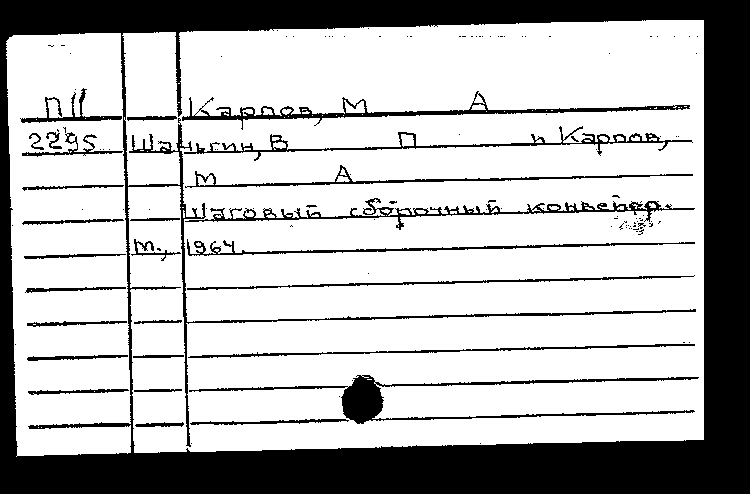 П11 Карпов, М А
2295 Шаньгин, В П и Карпов,
М А
Шаговый сборочный конвейер.
М., 1964.